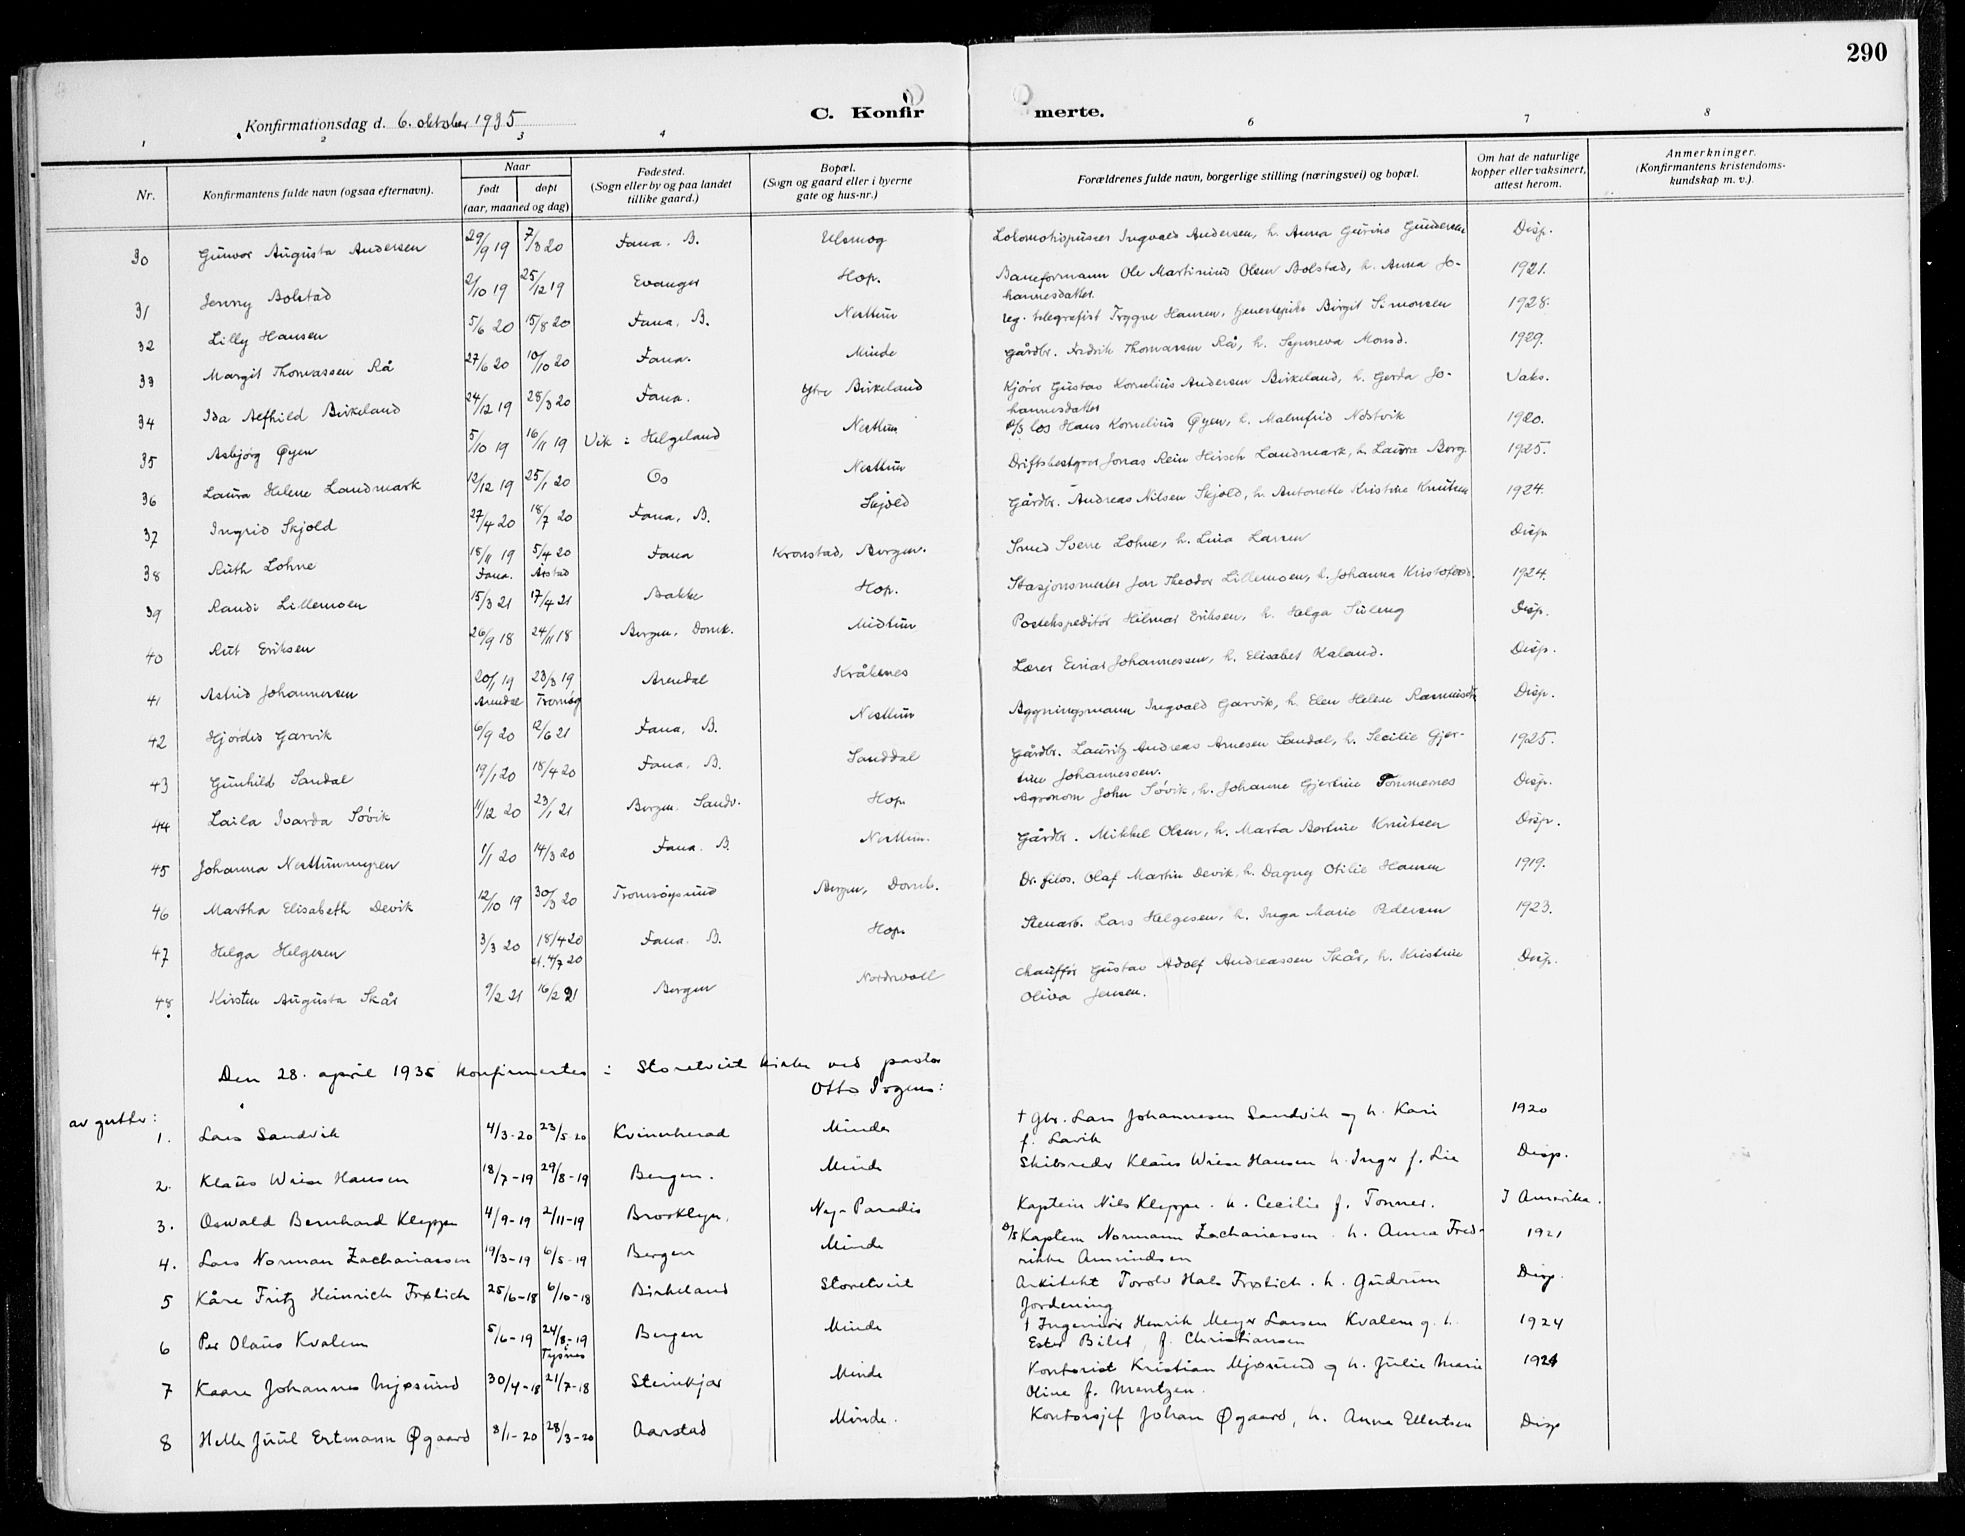 290
Konfirmationsdag d. 6. oktober 1935
C. Konfirmerte.
1 2 3 4 6 7 8
Nr.
Konfirmantens fulde navn (ogsaa efternavn).
Naar
født døpt
(aar, maaned og dag)
Fødested.
(Sogn eller by og paa landet
tillike gaard.)
Bopæl.
(Sogn og gaard eller i byerne
gate og hus-nr.)
Forældrenes fulde navn, borgerlige stilling (næringsvei) og bopæl.
Om hat de naturlige
kopper eller vaksinert,
attest herom.
Anmerkninger.
(Konfirmantens kristendoms-
kundskap m. v.).
30 Gunvor Augusta Andersen 29/9 19 7/3 20 Fana. B. Ulsmog Lokomotivpusser Ingvald Andersen, h. Anna Gurine Gundersen Disp.
31 Jenny Bolstad 2/10 19 25/12 19 Evanger Hop. Baneformann Ole Martinius Olsen Bolstad, h. Anna Jo-
hannesdatter. 1921.
32 Lilly Hansen 5/6 20 15/8 20 Fana, B. Nesttun reg. telegrafist Trygve Hansen, tjenestepike Birgit Simonsen 1928.
33 Margit Thomassen Rå 27/6 20 10/10 20 Fana. Minde gårdbr. Fredrik Thomassen Rå, h. Synneva Monsd. 1929.
34 Ida Alfhild Birkeland 24/12 19 28/3 20 Fana. Ytre Birkeland Kjører Gustav Kornelius Andersen Birkeland, h. Gerda Jo-
hannesdatter Vaks.
35 Asbjørg Øyen 5/10 19 16/11 19 Vik i Helgeland Nesttun los Hans Kornelius Øyen, h. Malmfrid Nostvik 1920.
36 Laura Helene Landmark 12/12 19 25/1 20 Os Nesttun Driftsbestyrer Jonas Rein Hirsch Landmark, h. Laura Borg 1925.
37 Ingrid Skjold 27/4 20 18/7 20 Fana, B. Skjold Gårdbr. Andreas Nilsen Skjold, h. Antonette Kristine Knutsen 1924.
38 Ruth Lohne 18/11 19 5/4 20 Fana Kronstad, Bergen. Smed Sverre Lohne, h. Lina Larsen Disp.
Fana. Årstad
39 Randi Lillemoen 15/3 21 17/4 21 Bakke Hop. Stasjonsmester Jon Theodor Lillemoen, h. Johanna Kristofersd. 1924.
40 Rut Eriksen 26/9 18 24/11 18 Bergen, Domk. Midtun Postekspeditør Hilmar Eriksen, h. Helga Suleng Disp.
41 Astrid Johannesen 20/1 19 23/3 19 Arendal Kråkenes Lærer Einar Johannessen, h. Elisabet Kaland. Disp.
Arendal Tromøy
42 Hjørdis Garvik 6/9 20 12/6 21 Fana, B. Nesttun Bygningsmann Ingvald Garvik, h. Elen Helene Rasmusdtr. Disp.
43 Gunhild Sandal 19/1 20 18/4 20 Fana, B. Sanddal Gårdbr. Lauritz Andreas Arnesen Sandal, h. Secilie Gjer-
tine Johannessen. 1925.
44 Laila Ivarda Søvik 11/12 20 23/1 21 Bergen. Sandv. Hop. Agronom John Søvik, h. Johanne Gjertine Tommernes Disp.
45 Johanna Nesttunmyren 1/1 20 14/3 20 Fana. B. Nesttun. Gårdbr. Mikkel Olsen, h. Marta Bertine Knutsen Disp.
46 Martha Elisabeth Devik 12/10 19 30/3 20 Tromsøysund Bergen, Domk. Dr. filos. Olaf Martin Devik, h. Dagny Otilie Hansen 1919.
47 Helga Helgesen 3/3 20 18/4 20 Fana. B. Hop. Stenarb. Lars Helgesen, h. Inga Marie Pedersen 1923.
st. 4/7 20
48 Kirsten Augusta Skår 9/2 21 16/2 21 Bergen Nordnvoll Chauffør Gustav Adolf Andreassen Skår, h. Kristine
Oliva Jensen. Disp.
Den 28. april 1935 konfirmertes i Storetveit kirke ved pastor
Otto Irgens:
av gutter:
1. Lars Sandvik 4/3-20 23/5-20 Kvinnherad Minde † Gbr. Lars Johannesen Sandvik og h. Kari
f. Lavik 1920
2. Klaus Wiese Hansen 18/7-19 29/8-19 Bergen. Minde Skibsreder Klaus Wiese Hansen h. Inger f. Lie Disp.
3. Oswald Bernhard Kleppe 4/9-19 2/11-19 Brooklyn. Ny-Paradis Kaptein Nils Kleppe. h. Cecilie f. Tonner. I Amerika.
4. Lars Norman Zachariassen 19/3-19 6/5-19 Bergen Minde D/S Kaptein Normann Zachariassen. h. Anna Fred-
rikke Amundsen 1921
5 Kåre Fritz Heinrich Frølich 25/6-18 6/10-18 Birkeland Storetveit Arkitekt Torolv Hals Frølich. h. Gudrun
Jordening Disp.
6 Per Olaus Kvalem 5/6-19 24/8-19 Bergen Minde † Ingeniør Henrik Meyer Larsen Kvalem g. h.
Tysnes Ester Bilet, f. Christiansen 1924
7 Kaare Johannes Mjøsund 30/4-18 21/7-18 Steinkjær Minde Kontorist Kristian Mjøsund og h. Julie Marie
Oline f. Mentzen. 1921
8 Helle Juul Ertmann Øgaard 8/1-20 28/3-20 Aarstad Minde. Kontorsjef Johan Øgaard, h. Anna Ellertsen Disp